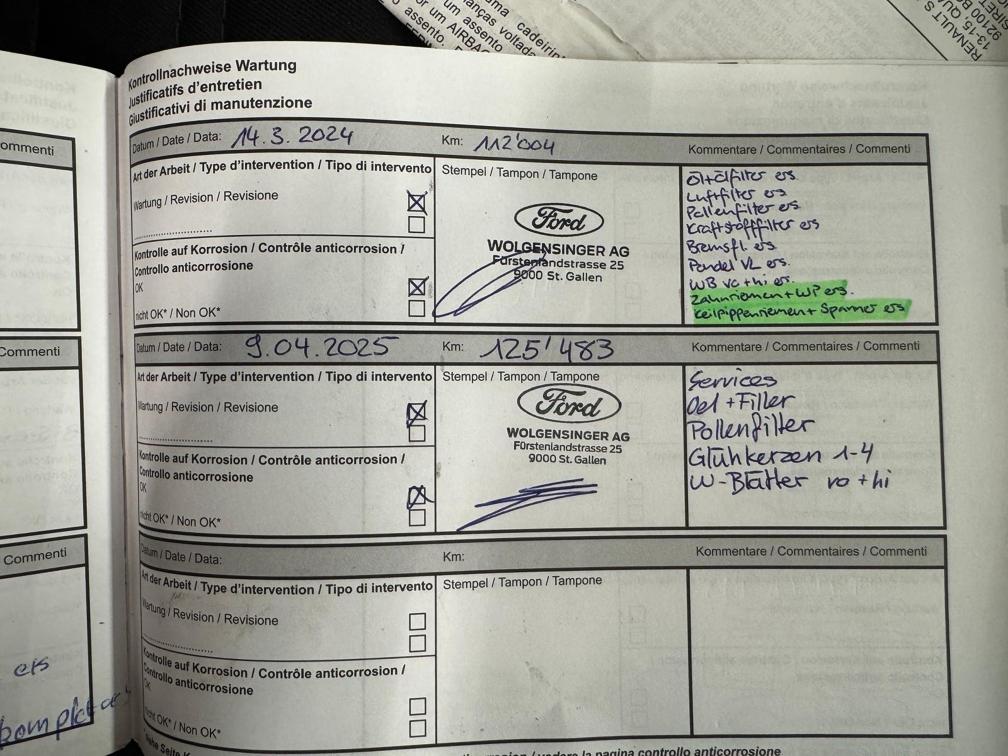 uma cadeirin
anças voltada
um assento
or um AIRBA
assento.
RENAULT S
13-15, QUA
92100 BO
Kontrollnachweise Wartung
Justificatifs d'entretien
Giustificativi di manutenzione
ommenti
Datum / Date / Data: 14.3.2024 Km: 112'004 Kommentare / Commentaires / Commenti
Art der Arbeit / Type d'intervention / Tipo di intervento
Wartung / Revision / Revisione
Kontrolle auf Korrosion / Contrôle anticorrosion /
Controllo anticorrosione
OK
nicht OK* / Non OK*
Stempel / Tampon / Tampone
Ford
WOLGENSINGER AG
Fürstenlandstrasse 25
9000 St. Gallen
Öl+Ölfilter ers
Luftfilter ers
Pollenfilter ers
Kraftstofffilter ers
Bremsfl. ers
Pendel VL ers.
WB vo + hi er.
Zahnriemen + WP ers.
Keilrippenriemen + Spanner ers
Commenti
Datum / Date / Data: 9.04.2025 Km: 125'483 Kommentare / Commentaires / Commenti
Art der Arbeit / Type d'intervention / Tipo di intervento
Wartung / Revision / Revisione
Kontrolle auf Korrosion / Contrôle anticorrosion /
Controllo anticorrosione
OK
nicht OK* / Non OK*
Stempel / Tampon / Tampone
Ford
WOLGENSINGER AG
Fürstenlandstrasse 25
9000 St. Gallen
Services
Oel + Filter
Pollenfilter
Glühkerzen 1-4
W-Blätter vo + hi
Commenti
ers
komplett
Datum / Date / Data: Km: Kommentare / Commentaires / Commenti
Art der Arbeit / Type d'intervention / Tipo di intervento
Wartung / Revision / Revisione
Kontrolle auf Korrosion / Contrôle anticorrosion /
Controllo anticorrosione
OK
nicht OK* / Non OK*
Stempel / Tampon / Tampone
la pagina controllo anticorrosione